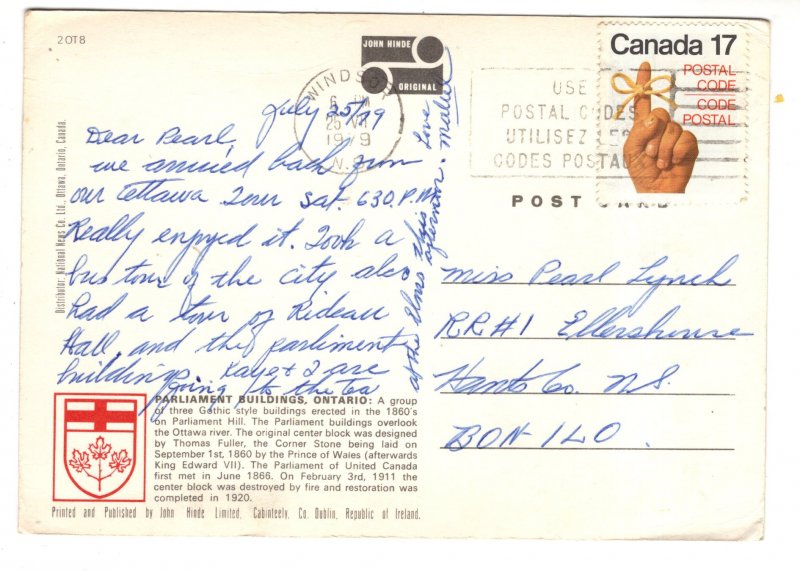 2OT8
JOHN HINDE
ORIGINAL
WINDSOR
6 PM
25 VII
1979
N.S.
USE
POSTAL CODES
UTILISEZ LES
CODES POSTAUX
Canada 17
POSTAL
CODE
CODE
POSTAL
POST CARD
July 25/79
Dear Pearl,
we arrived back from
our Ottawa Tour Sat. 6.30.P.M.
Really enjoyed it. Took a
bus tour of the city also
had a tour of Rideau
Hall, and the parliment
buildings. Kaye + I are
going to the tea
at the Elms this
afternoon. Love
Miss Pearl Lynch
RR#1 Ellershouse
Hants Co. N.S.
BON-1L0.
PARLIAMENT BUILDINGS, ONTARIO: A group
of three Gothic style buildings erected in the 1860's
on Parliament Hill. The Parliament buildings overlook
the Ottawa river. The original center block was designed
by Thomas Fuller, the Corner Stone being laid on
September 1st, 1860 by the Prince of Wales (afterwards
King Edward VII). The Parliament of United Canada
first met in June 1866. On February 3rd, 1911 the
center block was destroyed by fire and restoration was
completed in 1920.
Printed and Published by John Hinde Limited, Cabinteely, Co. Dublin, Republic of Ireland.
Distributor: National News Co. Ltd., Ottawa, Ontario, Canada.